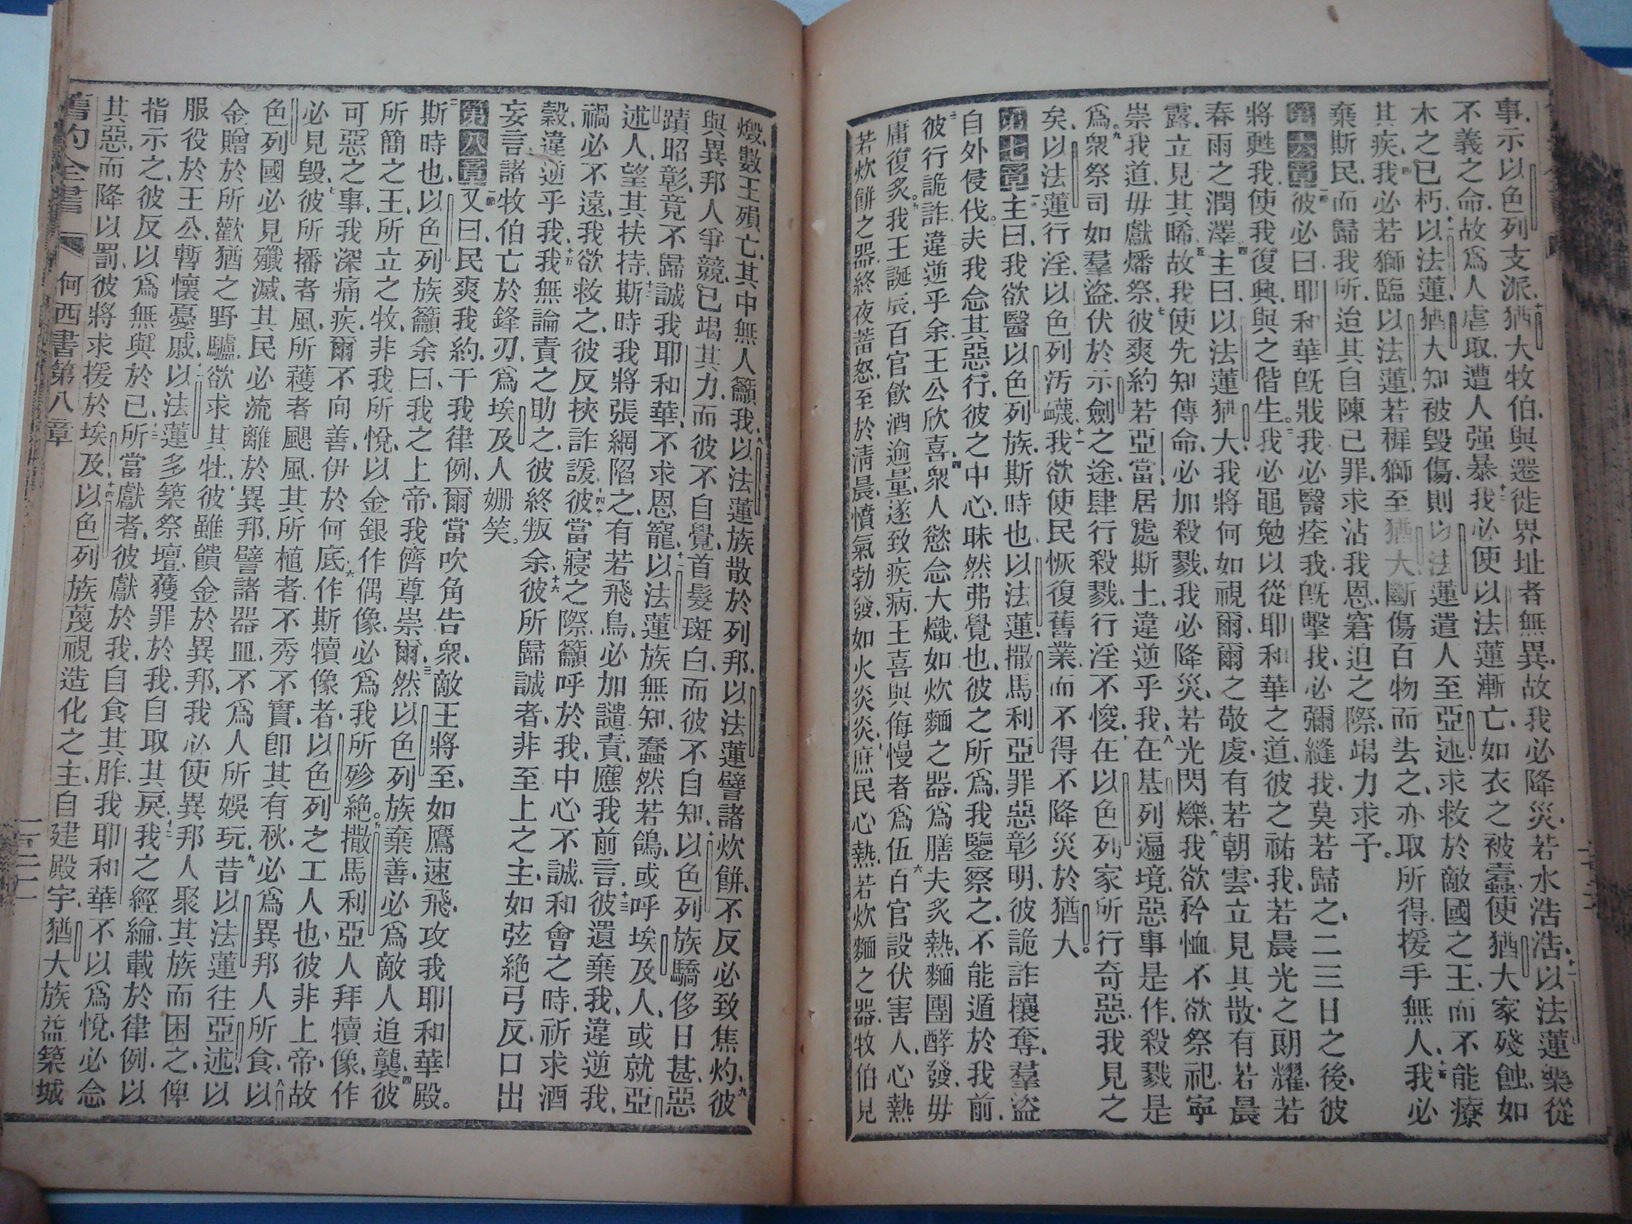 事、示以色列支派、猶大牧伯、與遷徙界址者無異、故我必降災、若水浩浩、以法蓮樂從
不義之命、故爲人虐取、遭人强暴、我必使以法蓮漸亡、如衣之被蠹、使猶大家殘蝕、如
木之已朽、以法蓮猶大、知被毀傷、則以法蓮遣人至亞述、求救於敵國之王、而不能療
其疾、我必若獅臨以法蓮、若穉獅至猶大、斷傷百物而去之、亦取所得、援手無人、我必
棄斯民、而歸我所、迨其自陳己罪、求沾我恩、窘迫之際、竭力求予。
第六章彼必曰、耶和華旣戕我、必醫痊我、旣擊我、必彌縫我、莫若歸之、二三日之後、彼
將甦我、使我復興、與之偕生、我必黽勉以從耶和華之道、彼之祐我、若晨光之朗耀、若
春雨之潤澤、主曰、以法蓮猶大、我將何如視爾、爾之敬虔、有若朝雲、立見其散、有若晨
露、立見其晞、故我使先知傳命、必加殺戮、我必降災、若光閃爍、我欲矜恤、不欲祭祀、寧
崇我道、毋獻燔祭、彼爽約若亞當、居處斯土、違逆乎我、在基列遍境、惡事是作、殺戮是
爲、衆祭司如羣盜、伏於示劍之途、肆行殺戮、行淫不悛、在以色列家、所行奇惡、我見之
矣、以法蓮行淫、以色列汚衊、我欲使民恢復舊業、而不得不降災於猶大。
第七章主曰、我欲醫以色列族、斯時也、以法蓮、撒馬利亞罪惡彰明、彼詭詐攘奪、羣盜
自外侵伐、夫我念其惡行、彼之中心昧然弗覺也、彼之所爲、我鑒察之、不能遁於我前、
彼行詭詐、違逆乎余、王公欣喜、衆人慾念大熾、如炊麵之器、爲膳夫炙熱、麵團酵發、毋
庸復炙、我王誕辰、百官飲酒逾量、遂致疾病、王喜與侮慢者爲伍、百官設伏害人、心熱
若炊餅之器、終夜蓄怒、至於淸晨、憤氣勃發、如火炎炎、庶民心熱、若炊麵之器、牧伯見
燬、數王殞亡、其中無人籲我、以法蓮族散於列邦、以法蓮譬諸炊餅、不反必致焦灼、彼
與異邦人爭競、已竭其力、而彼不自覺、首髮斑白、而彼不自知、以色列族驕侈日甚、惡
蹟昭彰、竟不歸誠我耶和華、不求恩寵、以法蓮族無知、蠢然若鴿、或呼埃及人、或就亞
述人、望其扶持、斯時我將張網陷之、有若飛鳥、必加譴責、應我前言、彼遺棄我、違逆我、
禍必不遠、我欲救之、彼反挾詐諼、彼當寢之際、籲呼於我、中心不誠、和會之時、祈求酒
穀、違逆乎我、我無論責之助之、彼終叛余、彼所歸誠者、非至上之主、如弦絶弓反、口出
妄言、諸牧伯亡於鋒刃、爲埃及人姍笑。
第八章又曰、民爽我約、干我律例、爾當吹角告衆、敵王將至、如鷹速飛、攻我耶和華殿。
斯時也、以色列族籲余曰、我之上帝、我儕尊崇爾、然以色列族棄善、必爲敵人追襲、彼
所簡之王、所立之牧、非我所悅、以金銀作偶像、必爲我所殄絶、撒馬利亞人拜犢像、作
可惡之事、我深痛疾、爾不向善、伊於何底、作斯犢像者、以色列之工人也、彼非上帝、故
必見毀、彼所播者風、所穫者颶風、其所植者、不秀不實、卽其有秋、必爲異邦人所食、以
色列國必見殲滅、其民必流離於異邦、譬諸器皿、不爲人所娛玩、昔以法蓮往亞述、以
金贈於所歡、猶之野驢、欲求其牡、彼雖饋金於異邦、我必使異邦人聚其族而困之、俾
服役於王公、暫懷憂戚、以法蓮多築祭壇、獲罪於我、自取其戾、我之經綸、載於律例、以
指示之、彼反以爲無與於己、所當獻者、彼獻於我、自食其胙、我耶和華不以爲悅、必念
其惡、而降以罰、彼將求援於埃及、以色列族蔑視造化之主、自建殿宇、猶大族益築城
舊約全書 何西書第八章